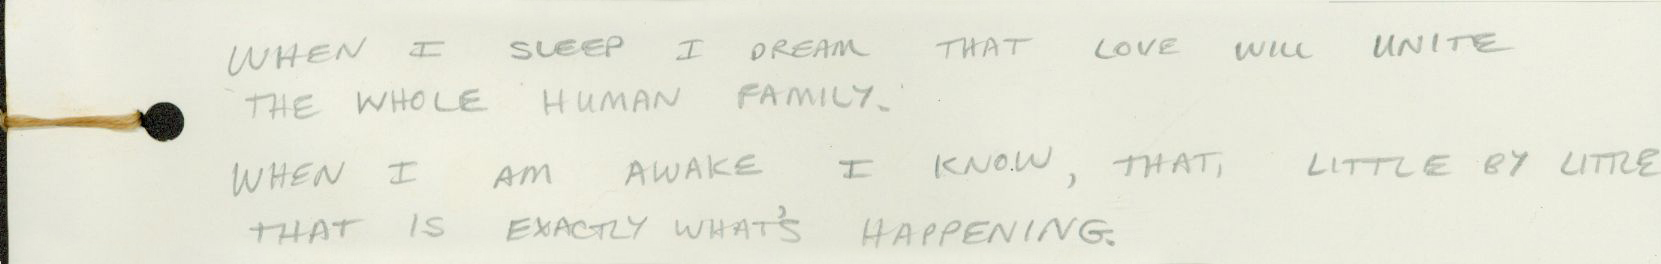 WHEN I SLEEP I DREAM THAT LOVE WILL UNITE
THE WHOLE HUMAN FAMILY.
WHEN I AM AWAKE I KNOW, THAT, LITTLE BY LITTLE
THAT IS EXACTLY WHAT'S HAPPENING.